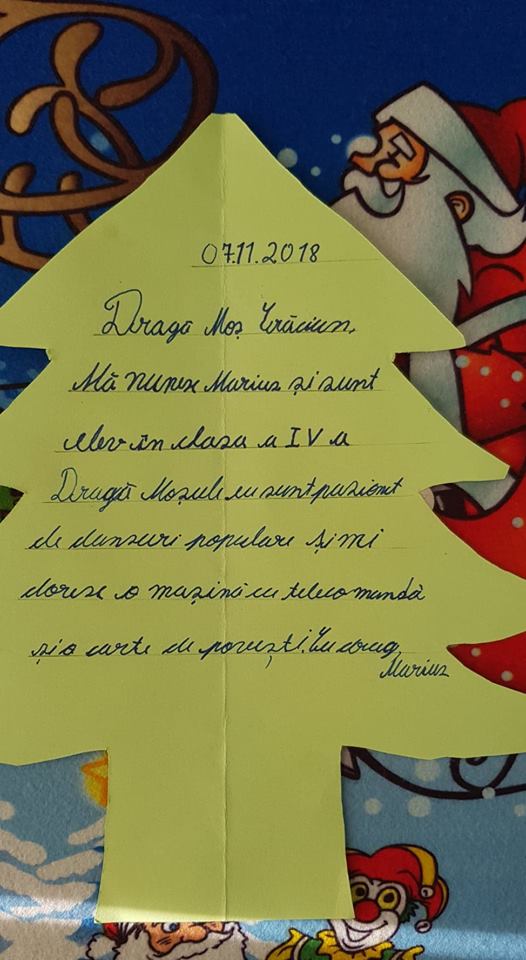 07.11.2018
Dragă Moș Crăciun,
Mă numesc Marius și sunt
elev în clasa a IV a
Dragă Moșule eu sunt pasionat
de dansuri populare și mi
doresc o mașină cu telecomandă
și o carte de povești. Cu drag,
Marius